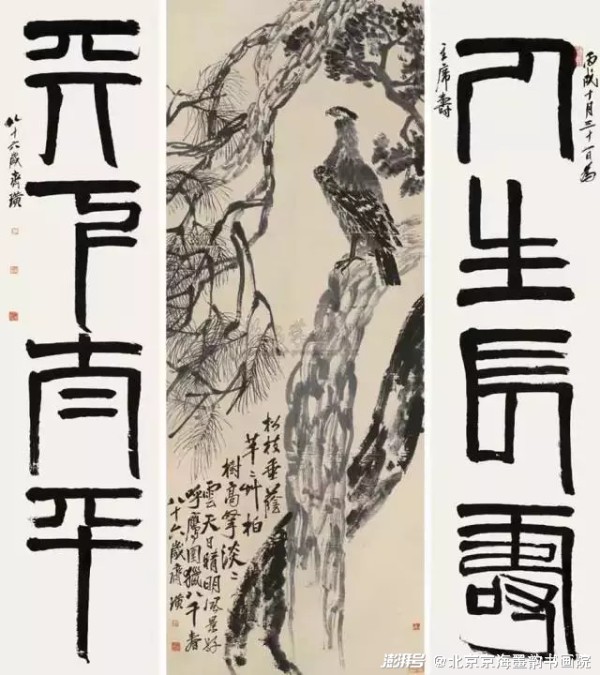 丙戌十月三十一日為
人生長壽
主席壽
松枝垂蔭
芊〻艸柏
樹高擎淡〻
雲天日晴明風景好
呼鷹圍獵八千春
八十六歲齊璜
天下太平
八十六歲齊璜
澎湃号 @北京京海墨韵书画院